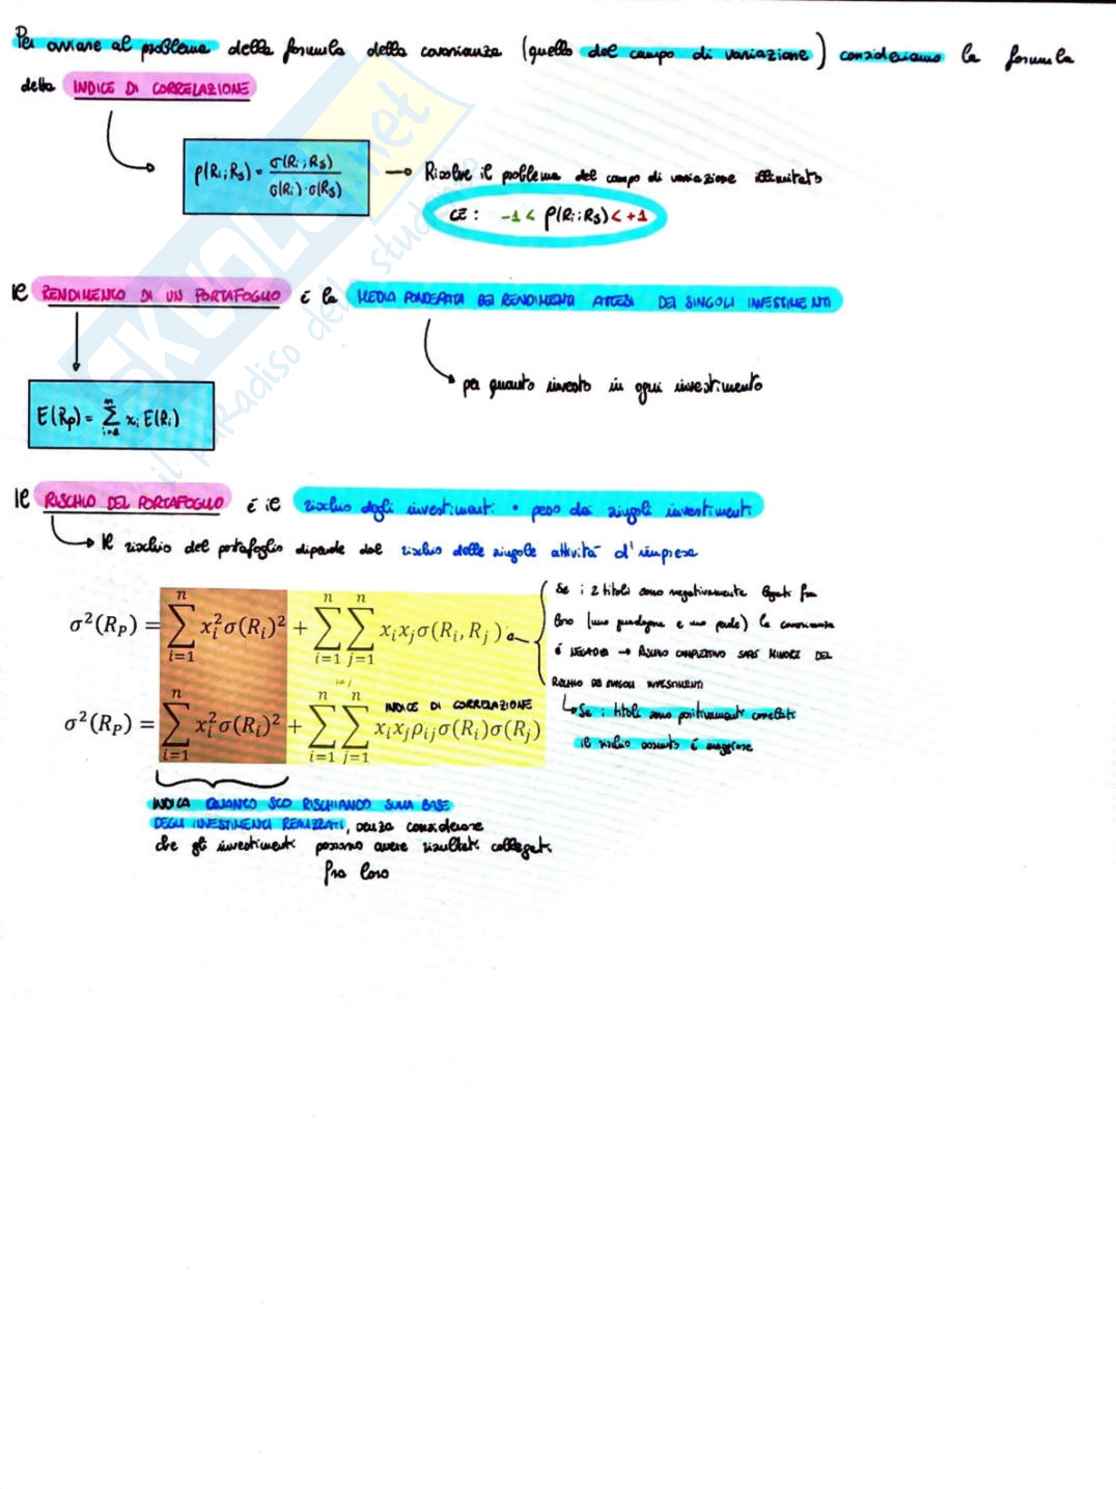 Per ovviare al problema della formula della covarianza (quello del campo di variazione) consideriamo la formula
della INDICE DI CORRELAZIONE
ρ(Ri;Rs) = σ(Ri;Rs) / σ(Ri)·σ(Rs) → Risolve il problema del campo di variazione illimitato
CE: -1 < ρ(Ri;Rs) < +1
Il RENDIMENTO DI UN PORTAFOGLIO è la MEDIA PONDERATA DEI RENDIMENTI ATTESI DEI SINGOLI INVESTIMENTI
per quanto investo in ogni investimento
E(Rp) = Σ xi E(Ri)
Il RISCHIO DEL PORTAFOGLIO è il rischio degli investimenti • peso dei singoli investimenti
Il rischio del portafoglio dipende dal rischio delle singole attività d'impresa
σ²(R_P) = ∑_{i=1}^{n} x_i²σ(R_i)² + ∑_{i=1}^{n} ∑_{j=1}^{n} x_i x_j σ(R_i, R_j)
i≠j
Se i 2 titoli sono negativamente legati fra
loro (uno guadagna e uno perde) la covarianza
è NEGATIVA → RISCHIO COMPLESSIVO SARÀ MINORE DEL
RISCHIO DEI SINGOLI INVESTIMENTI
Se i titoli sono positivamente correlati
il rischio assunto è maggiore
INDICE DI CORRELAZIONE
σ²(R_P) = ∑_{i=1}^{n} x_i²σ(R_i)² + ∑_{i=1}^{n} ∑_{j=1}^{n} x_i x_j ρ_{ij}σ(R_i)σ(R_j)
INDICA QUANTO STO RISCHIANDO SULLA BASE
DEGLI INVESTIMENTI REALIZZATI, senza considerare
che gli investimenti possono avere risultati collegati
fra loro
SKUOLA.net
il paradiso dello studente